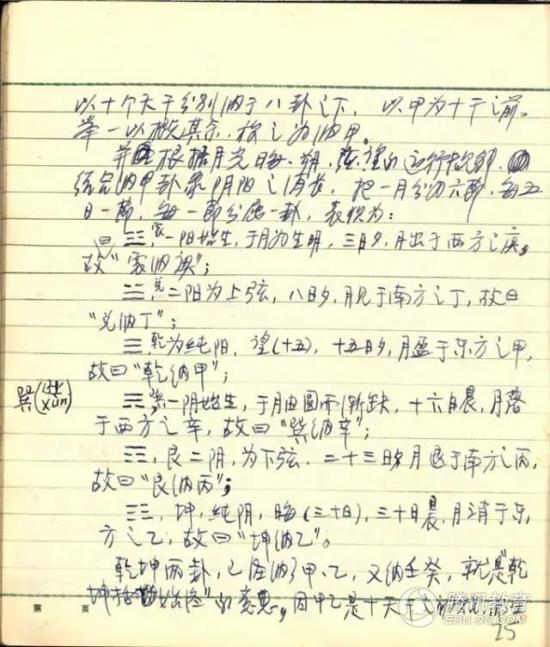 以十个天干分别纳于八卦之下，以甲为十干之前。
举一以概其余，按之为纳甲。
并根据月光晦、朔、弦、望的运行
结合纳甲卦象阴阳之消长，把一月分为六节，每五
日一节，每一节分属一卦，表快为：
☳，震一阳始生，于月为生明，三日夕，月出于西方之庚，
故“震纳庚”；
☱，兑二阳为上弦，八日夕，月见于南方之丁，故曰
“兑纳丁”；
☰，乾为纯阳，望（十五），十五日夕，月盈于东方之甲，
故曰“乾纳甲”；
巽（xùn）
☴，巽一阴始生，于月由圆而渐缺，十六日晨，月落
于西方之辛，故曰“巽纳辛”；
☶，艮二阴，为下弦，二十三日月退于南方之丙，
故曰“艮纳丙”；
☷，坤，纯阴，晦（三十日），三十日晨，月消于东
方之乙，故曰“坤纳乙”。
乾坤两卦，已经纳了甲、乙，又纳壬癸，就是“乾
坤括始终”的意思，因甲乙是十天干之
第 页
25
腾讯教育
EDU.QQ.COM